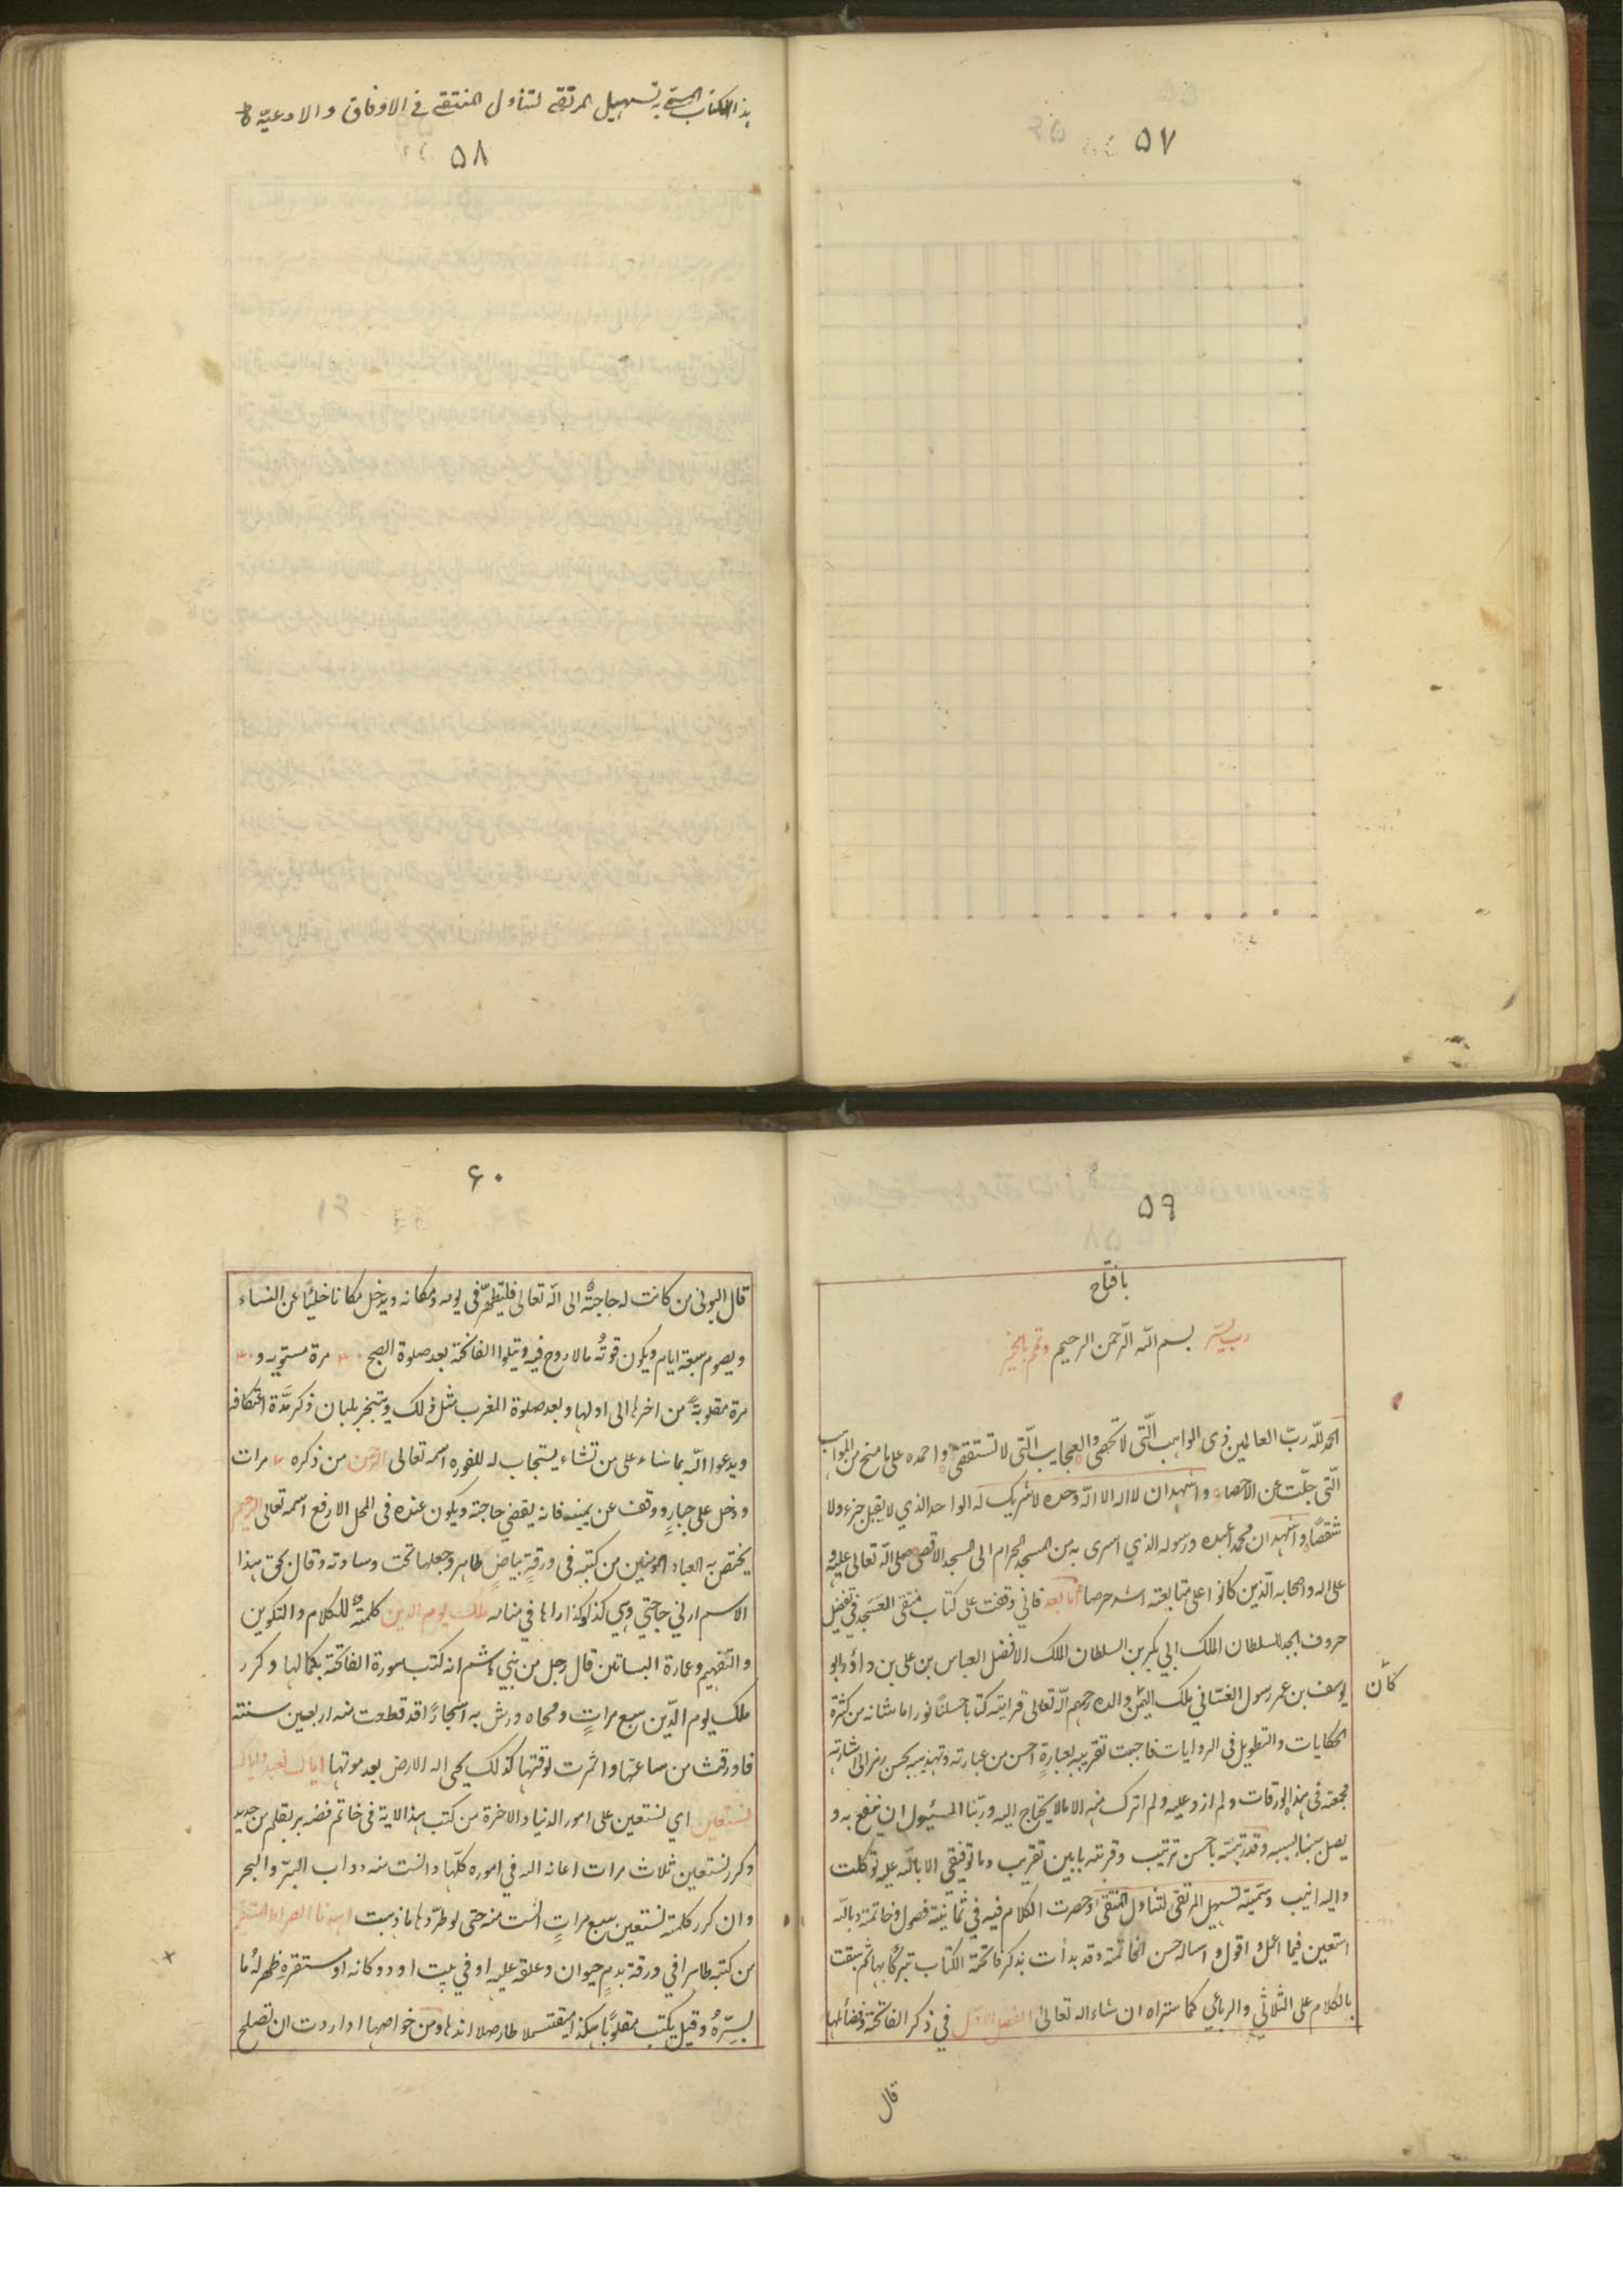 ٥٧
هذا الكتاب المسمّى به تسهيل المرتقى لتناول المنتقى في الاوفاق والادعيّة
٥٨
٥٩
يا فتاح
رب يسّر بسم الله الرّحمن الرحيم وتمم بالخير
الحمد لله ربّ العالمين ذى المواهب الّتى لا تحصى والعجايب الّتى لا تستقصى واحمده على ما منح من المواهب
الّتى جلّت عن الاحصاء واشهد ان لا اله الا الله وحده لا شريك له الواحد الذي لا يقبل جزء ولا
شقصًا واشهد ان محمدا عبده ورسوله الذي اسرى به من المسجد الحرام الى المسجد الاقصى صلى الله تعالى عليه و
على اله واصحابه الّذين كانوا على متابعته اشد حرصا امّا بعد فانى وقفت على كتاب منتقى العسجد في تفضيل
حروف ابجد للسلطان الملك ابي بكر بن السلطان الملك الافضل العباس بن على بن داؤد ابو
يوسف بن عمر رسول الغسّاني ملك اليمن والده رحمهم الله تعالى فرايته كتابا حسنًا نورا ما شانه من كثرة
كان
الحكايات والتطويل فى الروايات فاحببت تقريبه بعبارةٍ احسن من عبارته وتهذيبه بحسن رمز الى اشارته
فجمعته فى هذه الورقات ولم ازد عليه ولم اترك منه الا ما لا يحتاج اليه وربّنا المسئول ان ينفع به و
يصل سببنا بسببه وقد رتبته باحسن ترتيب وقربته بابين تقريب وما توفيقى الا بالله عليه توكلت
واليه انيب وسميّته تسهيل المرتقى لتناول المنتقى وحصرت الكلام فيه في ثمانية فصول وخاتمة وبالله
استعين فيما اعمل واقول واساله حسن الخاتمة وقد بدأت بذكر فاتحة الكتاب تبركًا بها ثم سبقت
بالكلام على الثلاثي والرباعي كما ستراه ان شاء اله تعالى الفصل الاوّل في ذكر الفاتحة وفضائلها
قال
٦٠
قال البونى من كانت له حاجةٌ الى الله تعالى فليتطهّر فى يومه ومكانه ويدخل مكانا خليًا عن النساء
ويصوم سبعة ايام ويكون قوتُه ما لا روح فيه ويتلوا الفاتحة بعد صلوة الصبح ٤٠ مرة مستويه و ٤٠
مرة مقلوبةً من اخرها الى اولها وبعد صلوة المغرب مثل ذلك ويتبخر بلبان ذكر مدّة اعتكافه
ويدعوا الله بما شاء على من تشاء يستجاب له للفوره اسمه تعالى الرّحمن من ذكره ٧ مرات
ودخل على جبارٍ ووقف عن يمينه فانه يقضي حاجته ويكون عنده فى المحل الارفع اسمه تعالى الرحيم
يختص به العباد المومنين من كتبه فى ورقةٍ بياضٍ طاهر وجعلها تحت وسادته وقال بحق هذا
الاسم ارني حاجتي وهي كذا وكذا اراها في منامه ملك يوم الدين كلمتهٌ للكلام والتكوين
والتفهيم وعمارة البساتين قال رجل من بني هاشم انه كتب سورة الفاتحة بكمالها وكرر
ملك يوم الدّين سبع مراتٍ ومحاه ورش به اشجارًا قد قطعت منه اربعين سنته
فاورقت من ساعتها واثمرت لوقتها كذلك يحيى اله الارض بعد موتها اياك نعبد واياك
نستعين اي نستعين على امور الدنيا والاخرة من كتب هذا الاية فى خاتم فضه بر بقلم من حديد
وكرر نستعين ثلاث مرات اعانه اله في اموره كلّها وانست منه دواب البرّ والبحر
وان كرر كلمة نستعين سبع مراتٍ انست منه حتى لو طرّدها ما ذهبت اهدنا الصراط المستقيم
من كتبه طاهرا في ورقة بدم حيوان وعلقه عليه او في بيت او دوكانه او مستقره ظهر لهُ ما
يسرّهُ وقيل يكتب مقلوبًا هكذا ميقتسملا طارصلا اندها ومن خواصها اذا اردت ان تصلح